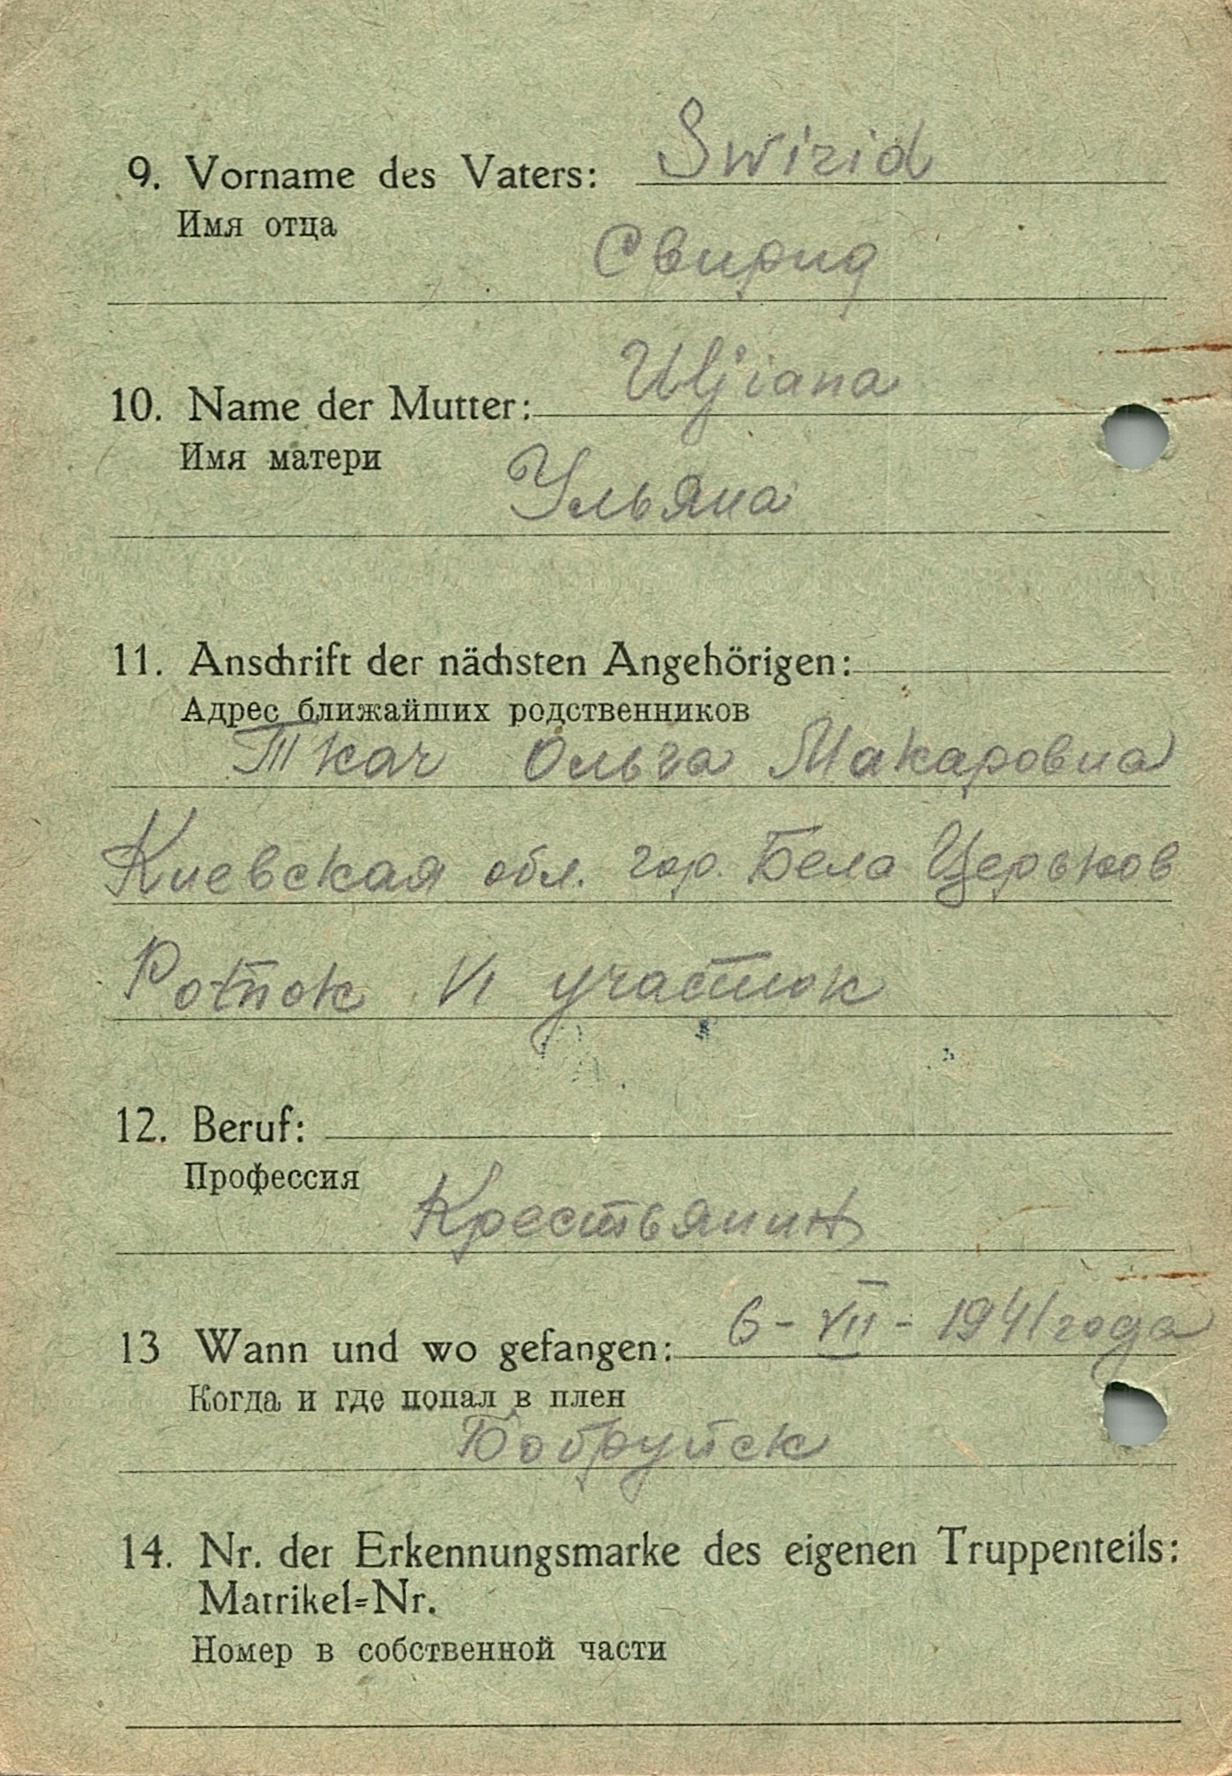 9. Vorname des Vaters: Swirid
Имя отца
Свирид
10. Name der Mutter: Uljiana
Имя матери
Ульяна
11. Anschrift der nächsten Angehörigen:
Адрес ближайших родственников
Ткач Ольга Макаровна
Киевская обл. гор. Бела Церьков
Роток VI участок
12. Beruf:
Профессия
Крестьянин
13 Wann und wo gefangen: 6-VII-1941 года
Когда и где попал в плен
Бобруйск
14. Nr. der Erkennungsmarke des eigenen Truppenteils:
Matrikel=Nr.
Номер в собственной части